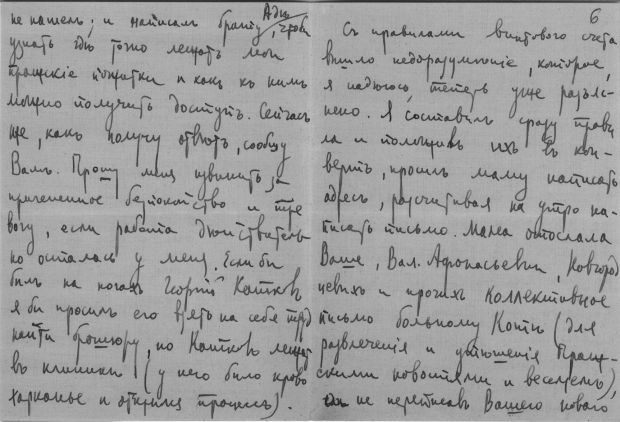 не нашелъ; и написалъ брату, чтобы
узнать гдѣ точно лежатъ мои
пражскіе пожитки и какъ къ нимъ
можно получить доступъ. Сейчасъ
же, какъ получу отвѣтъ, сообщу
Вамъ. Прошу меня извинить за
причиненное безпокойство и тре
вогу, если работа дѣйствитель
но осталась у меня. Если бы
былъ на ногахъ Георгій Катковъ
я бы просилъ его взять на себя трудъ
найти брошюру, но Катковъ лежитъ
въ клиникѣ (у него было крово
харканье и открылся процессъ).
6
Съ правилами винтового счета
вышло недоразумѣніе, которое,
я надѣюсь, теперь уже разъяс-
нено. Я составилъ сразу прави
ла и положивъ ихъ въ кон-
вертъ, просилъ маму написать
адресъ, разсчитывая на утро на-
писать письмо. Мама отослала
Ваше, Вал. Афонасьевны, Новгород
цевыхъ и прочихъ коллективное
письмо больному Коти (для
развлеченія и утѣшенія Праж-
скими новостями и весельемъ),
не переписавъ Вашего новаго